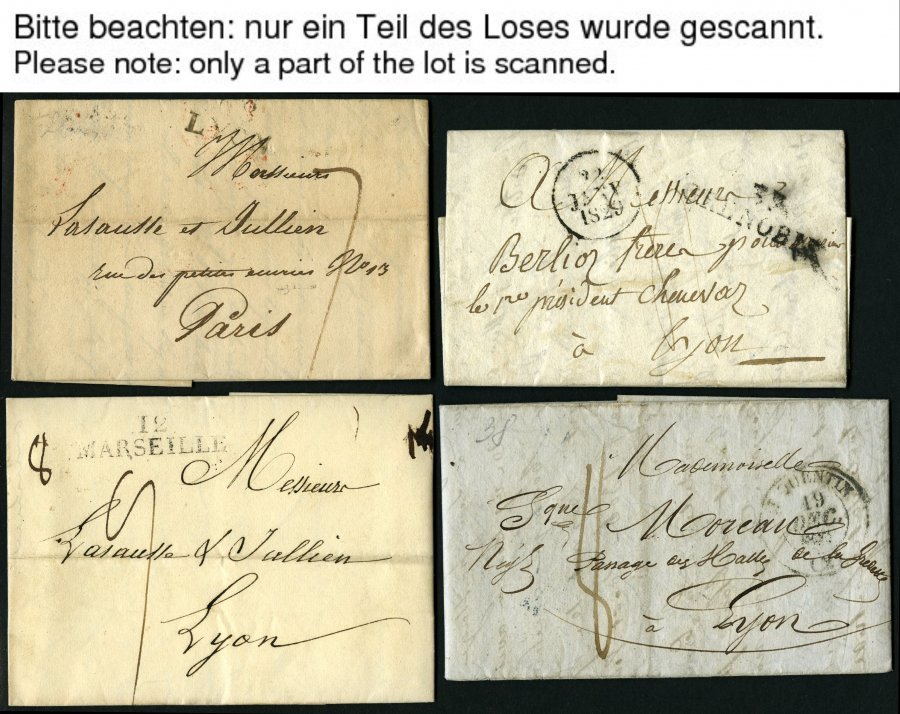 Bitte beachten: nur ein Teil des Loses wurde gescannt.
Please note: only a part of the lot is scanned.
Messieurs
Lasausse et Jullien
rue des petites ecuries No 13
Paris
22
JANV
1829
A Messieurs
GRENOBLE
Berlioz freres pour
le pr président Chenevaz
à Lyon
12
MARSEILLE
8
Messieurs
Lasausse & Jullien
Lyon
38
Mademoiselle
QUENTIN
19
DEC
Moreau
Passage des Halles de la Grenette
à Lyon